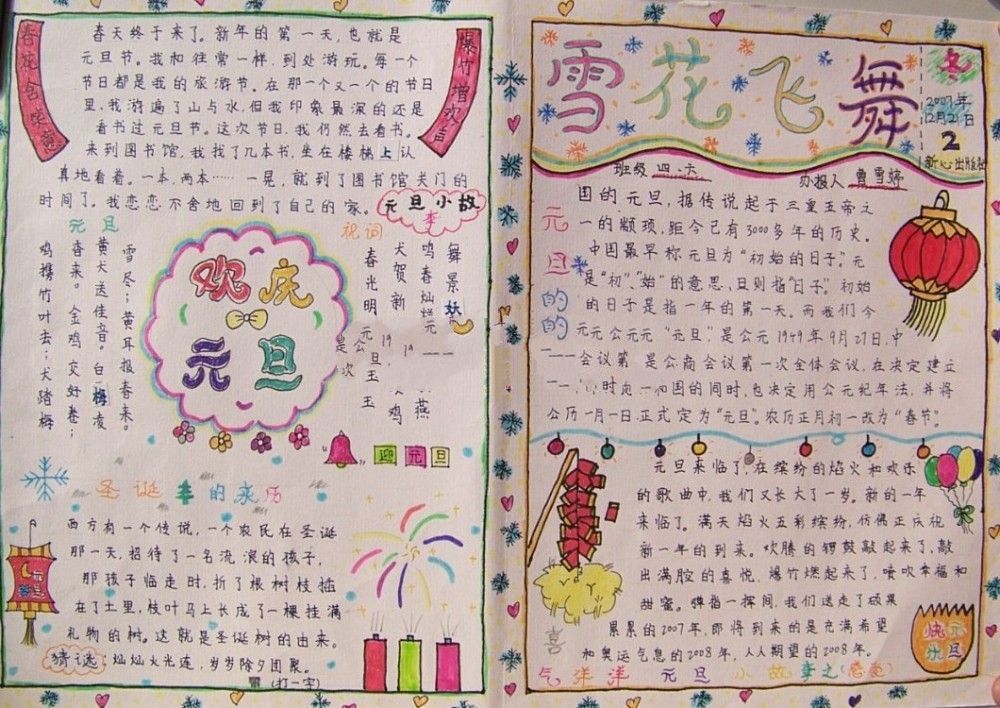 春花含笑意
爆竹增欢声
春天终于来了。新年的第一天，也就是
元旦节。我和往常一样，到处游玩。每一个
节日都是我的旅游节。在那一个又一个的节日
里，我游遍了山与水，但我印象最深的还是
看书过元旦节。这次节日，我仍然去看书。
来到图书馆，我找了几本书，坐在楼梯上认
真地看着。一本，两本……一晃，就到了图书馆关门的
时间了。我恋恋不舍地回到了自己的家。
元旦小故
李
元旦
祝词
雪尽；黄耳报春来。
黄犬送佳音。白梅凌
春来。金鸡交好卷；
鸡携竹叶去；犬踏梅
欢庆
元旦
舞景
鸣春灿烂元
犬贺新
春光明
迎元旦
圣诞的来历
西方有一个传说，一个农民在圣诞
那一天，招待了一名流浪的孩子，
那孩子临走时，折了根树枝插
在了土里，枝叶马上长成了一棵挂满
礼物的树。这就是圣诞树的由来。
猜谜：灿灿火光连，岁岁除夕团聚。
(打一字)
元旦
雪花飞舞
冬
2007年
12月21日
2
新心出版社
班级 四.六
办报人 曾雪婷
元旦的的
国的元旦，据传说起于三皇五帝之
一的颛顼，距今已有3000多年的历史。
中国最早称元旦为“初始的日子”。元
是“初”、“始”的意思，旦则指“日子”。初始
的日子是指一年的第一天。而我们今
元元公元元 “元旦”，是公元1949年9月27日，中
一一会议第一是公商会议第一次全体会议，在决定建立
国的同时，也决定用公元纪年法，并将
公历一月一日正式定为“元旦”。农历正月初一改为“春节”。
元旦来临了，在缤纷的焰火和欢乐
的歌曲中，我们又长大了一岁。新的一年
来临了。满天焰火五彩缤纷，仿佛正庆祝
新一年的到来。欢腾的锣鼓敲起来了，敲
出满腔的喜悦，爆竹燃起来了，喷吹幸福和
甜蜜。弹指一挥间，我们送走了硕果
累累的2007年，即将到来的是充满希望
和奥运气息的2008年，人人期望的2008年。
喜
气洋洋 元旦小故李之
快元
快旦